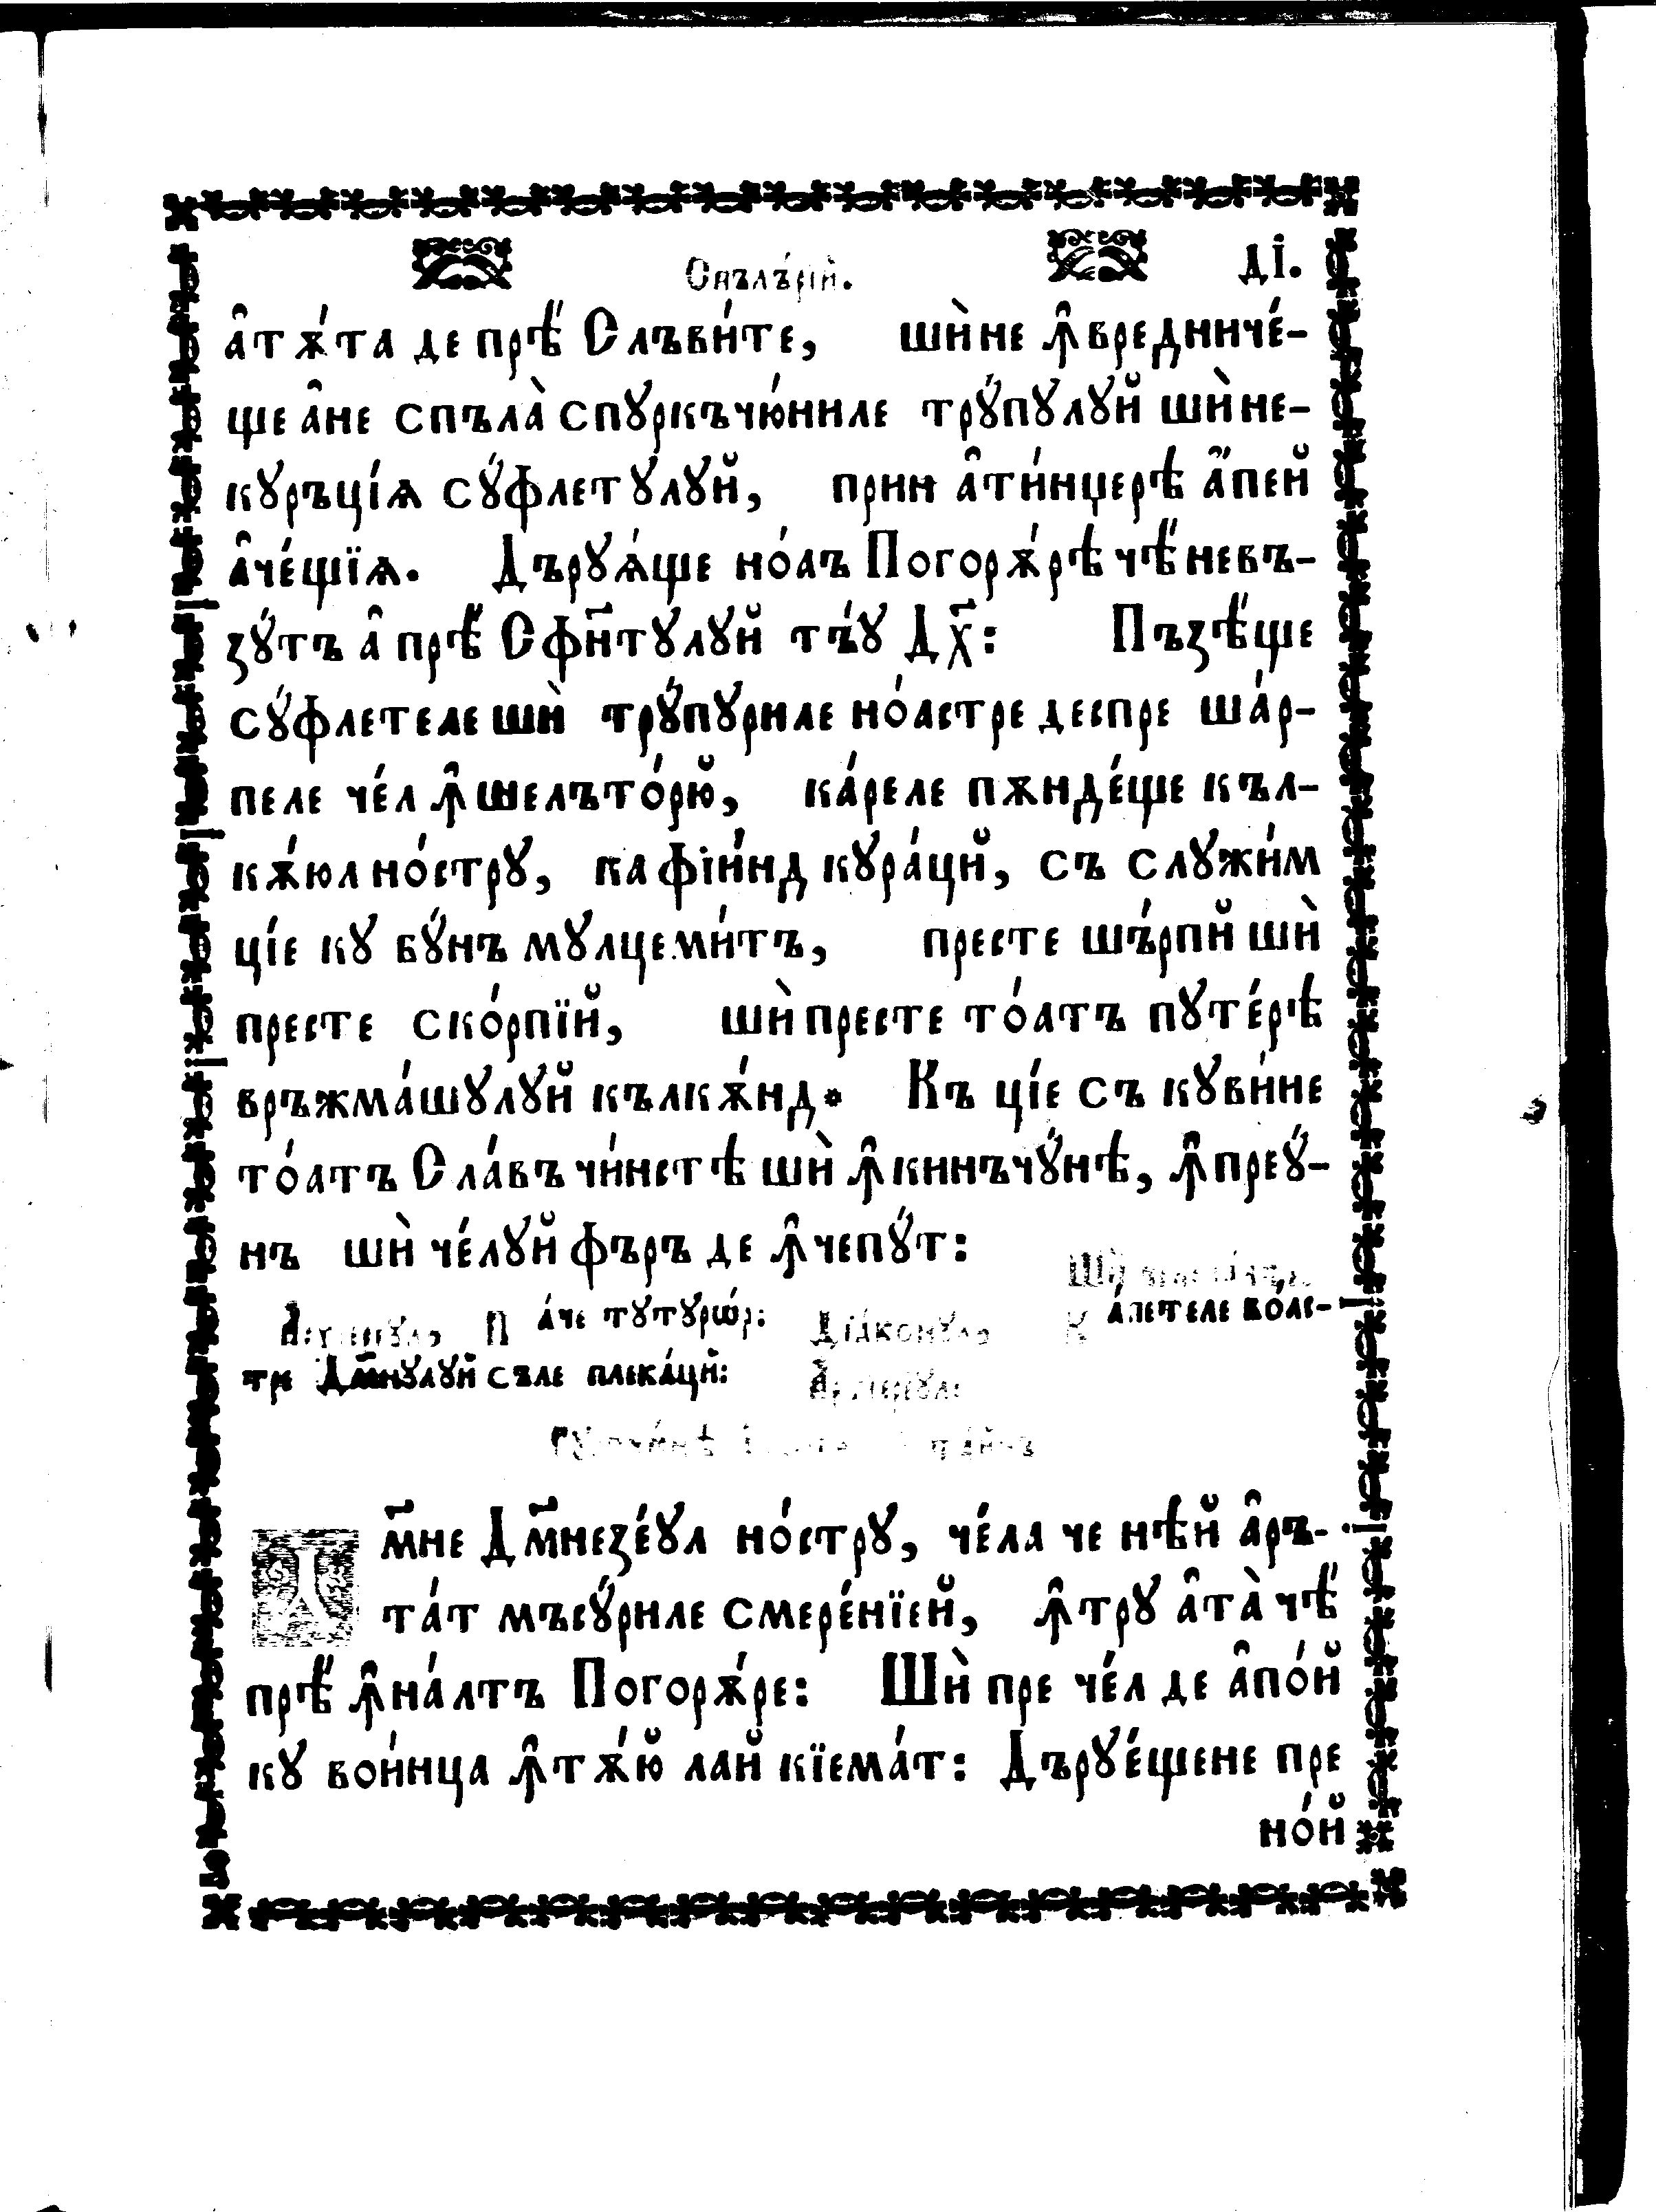 Спълъ́рїй. дı҃.
а҆тѫ́та де прѣ́ Слъви́те, шѝ не ꙟ҆вредниче́-
ще а҆не спъла̀ спꙋркъчю́ниле трꙋ́пꙋлꙋй шѝ не-
кꙋръцíѧ сꙋ́флетꙋлꙋй, прин а҆ти́нџерѣ а҆́пей
а҆че́щїѧ. Дърꙋѧ́ще но́аъ Погорѫ́рѣ чѣ́ невъ-
зꙋ́тъ а҆ прѣ́ Сфн҃тꙋ́лꙋй тъ́ꙋ Дх҃: Пъзѣ́ще
сꙋ́флетеле шѝ трꙋ́пꙋриле но́астре деспре ша́р-
пеле че́л ꙟ҆шелъто́рю̆, ка́реле пѫнде́ще къл-
кѫ́юл но́стрꙋ, ка фіи́нд кꙋра́цй, съ слꙋжи́м
ціе кꙋ бꙋ́нъ мꙋлцеми́тъ, престе шъ́рпй шѝ
престе ско́рпїй, шѝ престе то́атъ пꙋте́рѣ
връжма́шꙋлꙋй кълкѫ́нд* Къ ціе съ кꙋви́не
то́атъ Сла́въ чи́нстѣ шѝ ꙟ҆кинъчꙋ́нѣ, ꙟ҆преꙋ́-
нъ шѝ че́лꙋй фъръ де ꙟ҆чепꙋ́т:
Шѝ
П а́че тꙋтꙋрѡ́р: Дїа́конꙋл, К а́петеле во́ас-
тре Дм҃нꙋлꙋй съле плека́цй:
м҃не Дм҃незе́ꙋл но́стрꙋ, че́ла че нѣ́й а҆ръ-
та́т мъсꙋ́риле смере́нїей, ꙟ҆трꙋ а҆та̀ чѣ́
прѣ́ ꙟ҆на́лтъ Погорѫ́ре: Шѝ пре че́л де а҆по́й
кꙋ вои́нца ꙟ҆тѫ́ю̆ лай кїема́т: Дърꙋе́щене пре
но́й